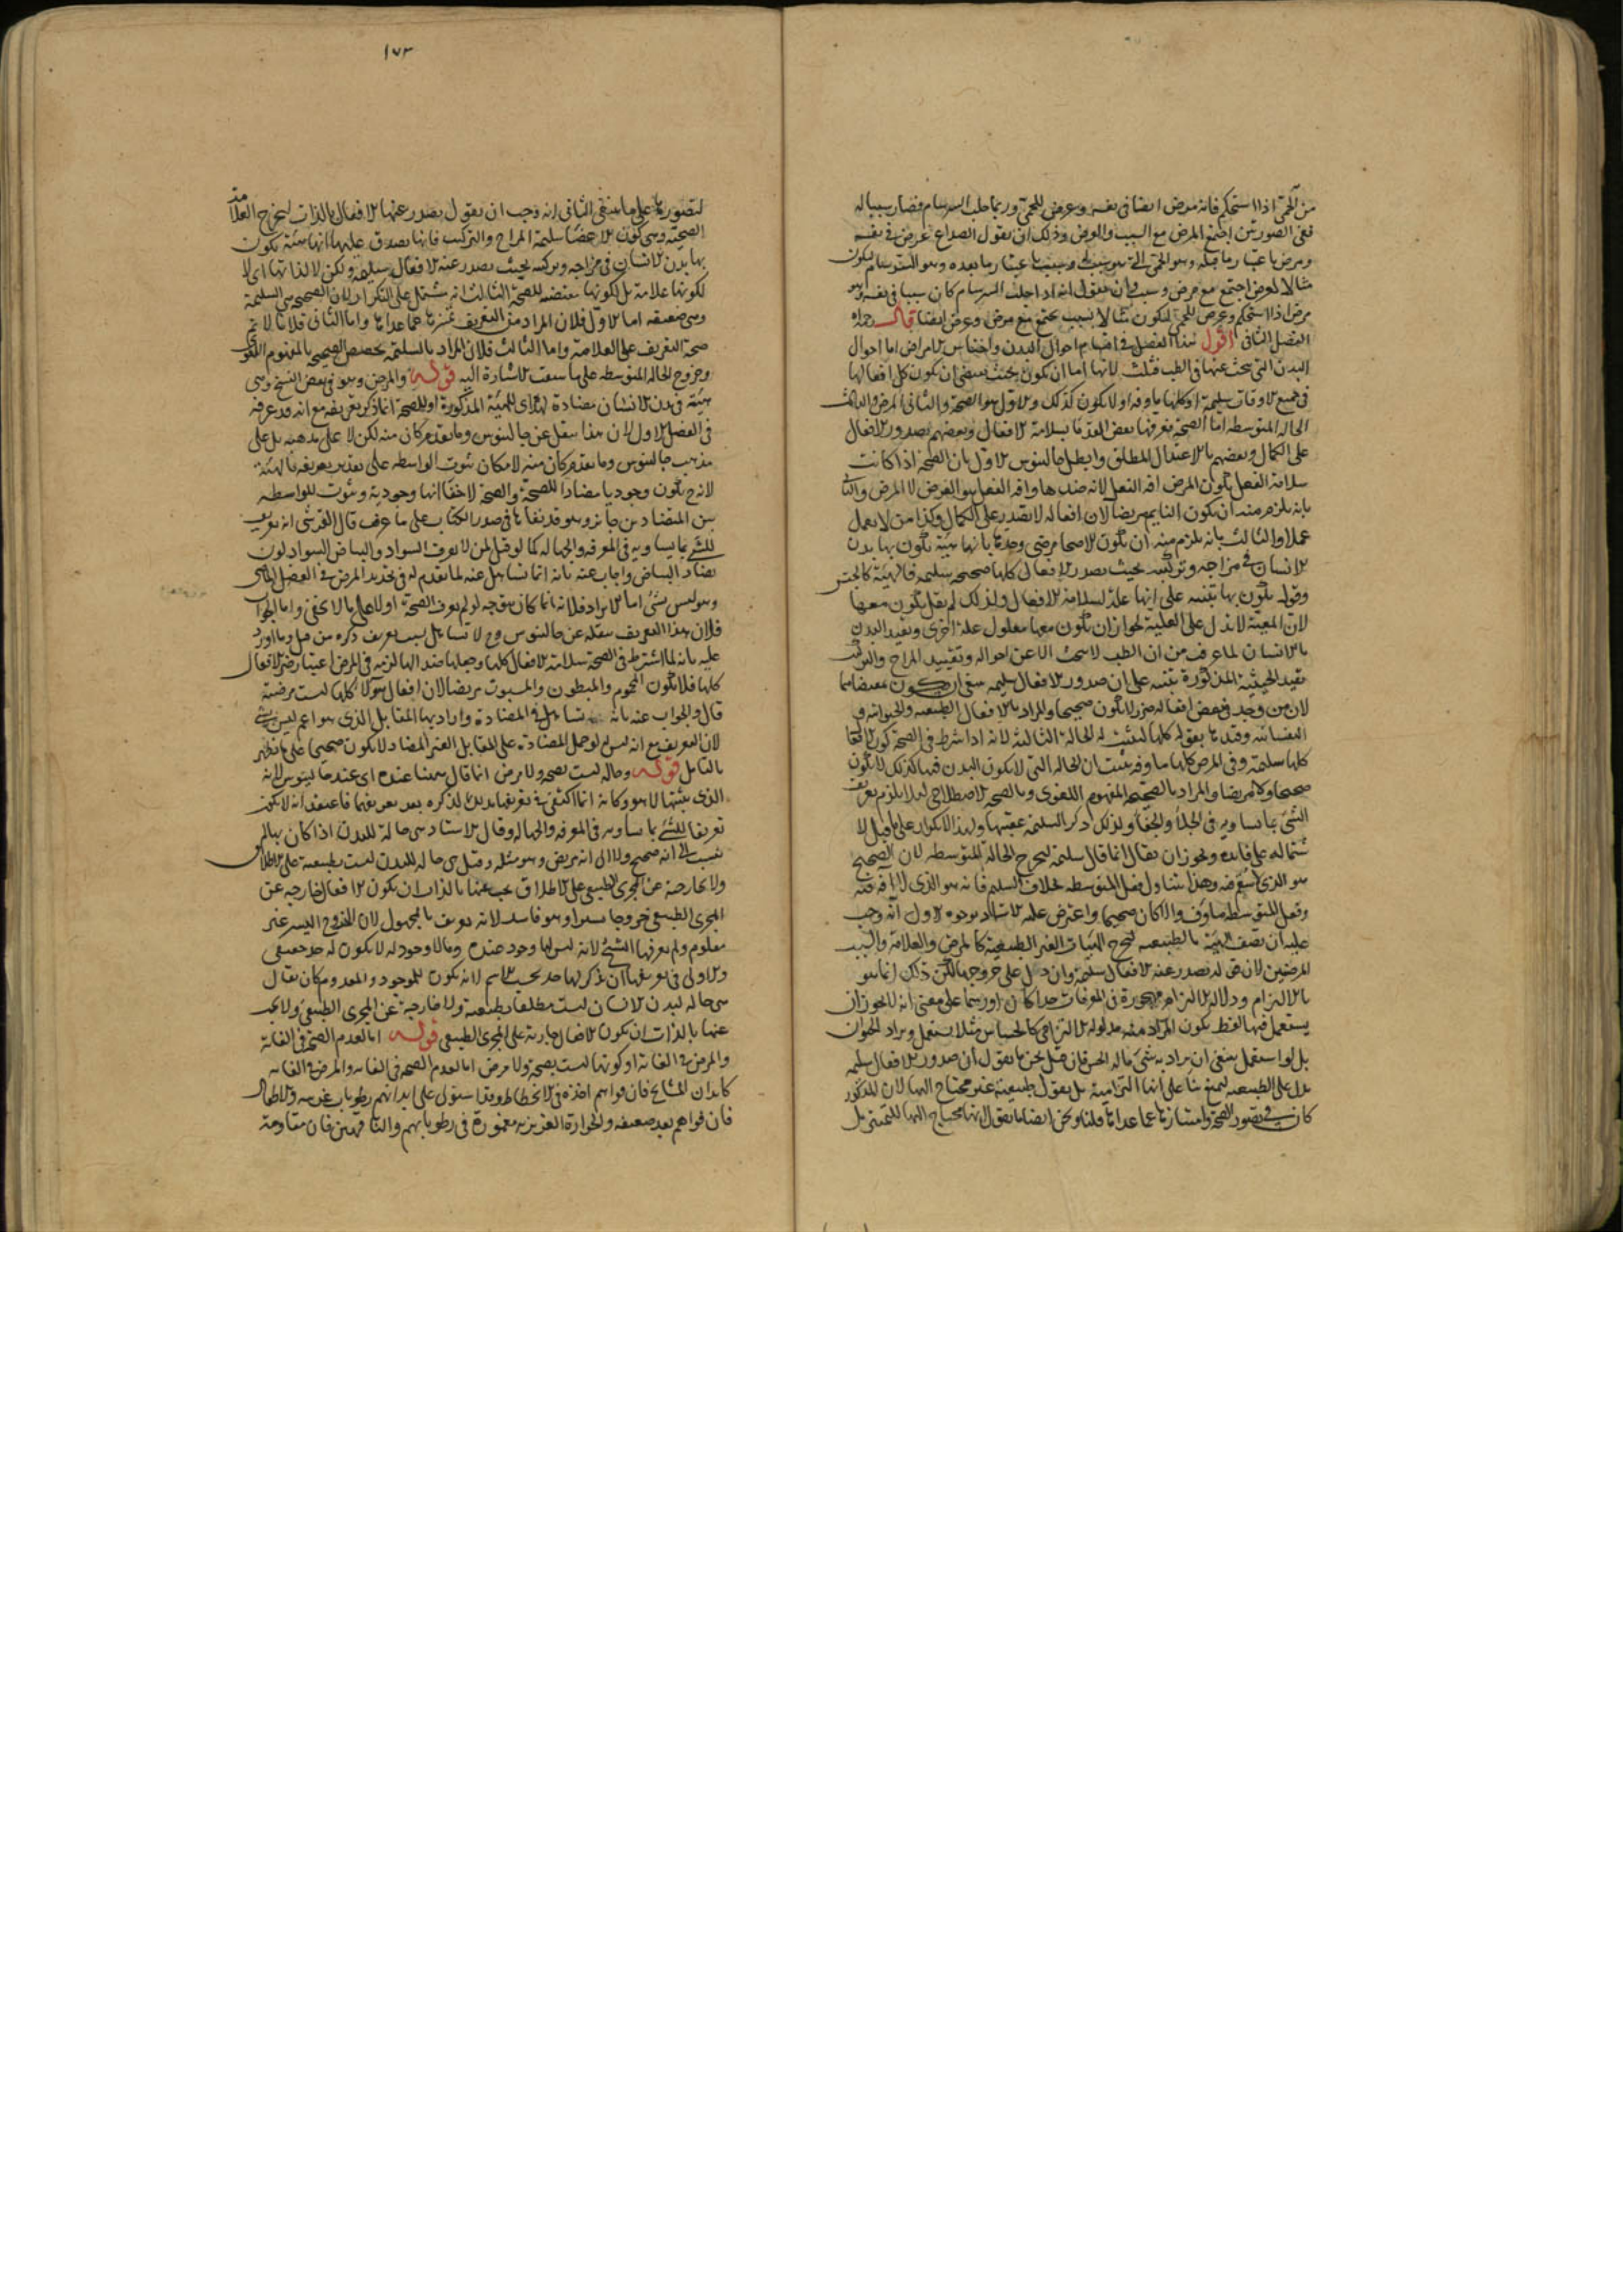 من الحمى اذا استحكم فانه مرض ايضا فى نفسه وعرض للحمى وربما جلب السرسام فصار سببا له
ففى الصورتين اجتمع المرض مع السبب والعرض وذلك ان يقول الصداع عرض فى نفسه
ومرض باعتبار ما قبله وهو الحمى وسبب باعتبار ما بعده وهو السرسام فيكون
مثالا لعرض اجتمع مع مرض وسبب وان يقول انه اذا جلب السرسام كان سببا فى نفسه وهو
مرض اذا استحكم وعرض للحمى فيكون مثالا لسبب يجتمع مع مرض وعرض ايضا قال رحمه الله
الفصل الثانى اقول هذا الفصل فى اقسام احوال البدن واجناس الامراض اما احوال
البدن التى يبحث عنها فى الطب فثلث لانها اما ان يكون بحيث يقتضى ان يكون كل افعالها
فى جميع الاوقات سليمة او كلها ماوفة او لا يكون كذلك والاول هو الصحة والثانى المرض والثالث
الحالة المتوسطة اما الصحة فعرفها بعض القدما بسلامة الافعال وبعضهم بصدور الافعال
على الكمال وبعضهم بالاعتدال المطلق وابطل جالينوس الاول بان الصحة اذا كانت
سلامة الفعل يكون المرض افة الفعل لانه ضدها وافة الفعل هو العرض لا المرض والثانى
بانه يلزم منه ان يكون النايم مريضا لان افعاله لا يصدر على الكمال وكذا من لا يعمل
عملا والثالث بانه يلزم منه ان يكون الاصحا مرضى وحدها بانها هيئة يكون بها بدن
الانسان فى مزاجه وتركيبه بحيث يصدر الافعال كلها صحيحة سليمة فالهيئة كالجنس
وقوله يكون بها تنبيه على انها علة لسلامة الافعال ولذلك لم يقل يكون معها
لان المعية لا تدل على العلية لجواز ان يكون معها معلول علة اخرى وتقييد البدن
بالانسان لما عرف من ان الطب لا يبحث الا عن احواله وتقييد المزاج والتركيب
بقيد الحيثية المذكورة تنبيه على ان صدور الافعال سليمة ينبغى ان يكون مقتضاهما
لان من وجد فى بعض افعاله ضرر لا يكون صحيحا والمراد بالافعال الطبيعية والحيوانية و
النفسانية وقيدها بقوله كلها ليثبت له الحالة الثالثة لانه اذا شرط فى الصحة كون الافعال
كلها سليمة وفى المرض كلها ماوفة يثبت ان الحالة التى لا يكون البدن فيها كذلك لا يكون
صحيحا ولا مريضا والمراد بالصحيحة المفهوم اللغوى وبالصحة الاصطلاحى لئلا يلزم تعريف
الشئ بما يساويه فى الجلاء والخفاء ولذلك ذكر السليمة عقيبها ولهذا لا تكرار على ما قيل لا
شتماله على فايدة ويجوز ان يقال انما قال سليمة ليخرج الحالة المتوسطة لان الصحيح
وفعل المتوسط ماوف والا كان صحيحا واعترض عليه الاستاد بوجوه الاول انه وجب
عليه ان يصف الهيئة بالطبيعية ليخرج الهيئات الغير الطبيعية كالمرض والعلامة والسبب
المرضيين لان قوله يصدر عنه الافعال سليمة وان دل على خروجها لكن ذلك انما هو
بالالتزام ودلالة الالتزام مهجورة فى المعرفات حدا كان او رسما على معنى انه لا يجوز ان
يستعمل فيها لفظ يكون المراد منه مدلوله الالتزامى كالحساس مثلا يستعمل ويراد الحيوان
بل لو استعمل ينبغى ان يراد به شئ ما له الحس فان قيل نحن ما نقول ان صدور الافعال سليمة
يدل على الطبيعية ليمنع بنا على انها التزامية بل نقول طبيعية غير محتاج اليها لان المذكور
كاف فى تصور الصحة وامتيازها عما عداها قلنا ونحن ايضا ما نقول انها محتاج اليها للتمييز بل
١٧٣
لتصورها على ما ينبغى الثانى انه وجب ان يقول يصدر عنها الافعال بالذات ليخرج العلامة
الصحية وهى كون الاعضا سليمة المزاج والتركيب فانها يصدق عليها انها هيئة يكون
بها بدن الانسان فى مزاجه وتركيبه بحيث يصدر عنه الافعال سليمة ولكن لا لذاتها اى لا
لكونها علامة بل لكونها مقتضية للصحة الثالث انه يشتمل على التكرار لان الصحيحة هى السليمة
وهى ضعيفة اما الاول فلان المراد من التعريف تميزها عما عداها واما الثانى فلانا لا نم
صحة التعريف على العلامة واما الثالث فلان المراد بالسليمة تخصيص الصحيحة بالمفهوم اللغوى
وخروج الحالة المتوسطة على ما سبقت الاشارة اليه قوله والمرض وهو فى بعض النسخ وهى
هيئة فى بدن الانسان مضادة لهذه اى للهيئة المذكورة او للصحة انما ذكر تعريفه مع انه قد عرفه
فى الفصل الاول لان هذا ينقل عن جالينوس وما تقدم كان منه لكن لا على مذهبه بل على
مذهب جالينوس وما تقدم كان منه لامكان ثبوت الواسطة على تقدير تعريفه بالهيئة
لانه ح يكون وجوديا مضادا للصحة والصحة لا خفا انها وجودية وثبوت الواسطة
بين المتضادين جايز وهو قد نفاها فى صدر الكتاب على ما عرف قال القرشى انه تعريف
للشئ بما يساويه فى المعرفة والجهالة كما لو قيل لمن لا يعرف السواد والبياض السواد لون
يضاد البياض واجاب عنه بانه انما تساهل عنه لما تقدم له فى تحديد المرض فى الفصل الماضى
وهو ليس بشئ اما الايراد فلانه انما كان يتوجه لو لم يعرف الصحة اولا على ما لا يخفى واما الجواب
فلان هذا التعريف ينقله عن جالينوس وح لا تساهل بسبب تعريف ذكره من قبل وما اورد
عليه بانه لما اشترط فى الصحة سلامة الافعال كلها وجعلها ضدا لها لزمه فى المرض اعتبار ضرر الافعال
كلها فلا يكون المحموم والمبطون والمسبوت مريضا لان افعال هؤلاء كلها ليست مرضية
قال والجواب عنه بانه تساهل فى المضادة واراد بها المقابل الذى هو اعم ليس بشئ
لان التعريف مع انه ليس لو حمل المضادة على المقابل الغير المضاد لا يكون صحيحا على ما يظهر
بالتامل قوله وحالة ليست بصحة ولا مرض انما قال ههنا عنده اى عند جالينوس لانه
الذى يثبتها لا هو وكانه انما اكتفى فى تعريفها بذلك لذكره بعد تعريفهما فاعتقد انه لا يكون
تعريفا للشئ بما يساويه فى المعرفة والجهالة وقال الاستاد هى حالة للبدن اذا كان بها لم
ينسب الى انه صحيح ولا الى انه مريض وهو مثله وقيل هى حالة للبدن ليست بطبيعية على الاطلاق
ولا خارجة عن المجرى الطبيعى على الاطلاق يجب عنها بالذات ان يكون الافعال خارجة عن
المجرى الطبيعى خروجا يسيرا وهو فاسد لانه تعريف بالمجهول لان الخروج اليسير غير
معلوم ولم يعرفها الشيخ لانه ليس لها وجود عنده وما لا وجود له لا يكون له حد حقيقى
والاولى فى تعريفها ان يذكر لها حد بحسب الاسم لانه يكون للموجود والمعدوم كان يقال
هى حالة لبدن الانسان ليست مطلقا بطبيعية ولا خارجة عن المجرى الطبيعى ولا يجب
عنها بالذات ان يكون الافعال جارية على المجرى الطبيعى قوله اما لعدم الصحة فى الغاية
والمرض فى الغاية او كونها ليست بصحة ولا مرض اما لعدم الصحة فى الغاية والمرض فى الغاية
كابدان المشايخ فان قواهم اخذة فى الانحطاط وقد استولى على ابدانهم رطوبات غريبة والاطفال
فان قواهم بعد ضعيفة والحرارة الغريزية مغمورة فى رطوباتهم والناقهين فان مقاومة